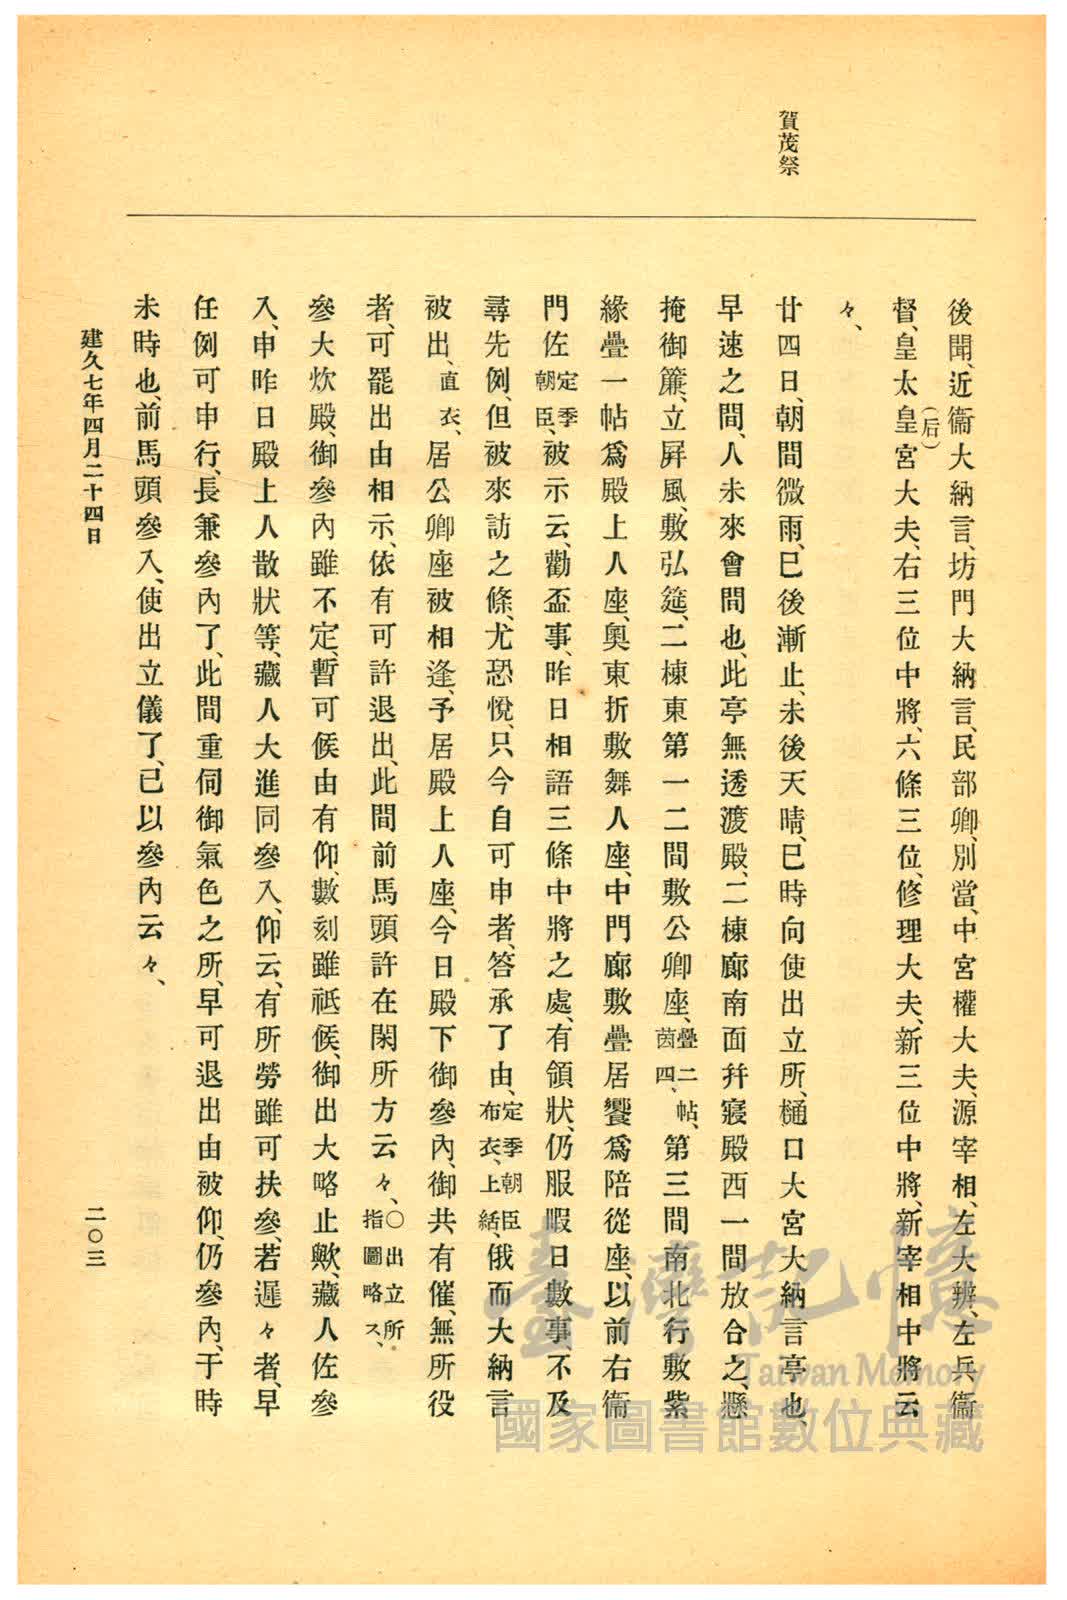 賀茂祭
後聞、近衞大納言、坊門大納言、民部卿、別當、中宮權大夫、源宰相、左大辨、左兵衞
督、皇太皇(后)宮大夫、右三位中將、六條三位、修理大夫、新三位中將、新宰相中將云
々、
廿四日、朝間微雨、巳後漸止、未後天晴、巳時向使出立所、樋口大宮大納言亭也、
早速之間、人未來會間也、此亭無透渡殿、二棟廊南面幷寢殿西一間放合之、懸
掩御簾、立屛風、敷弘筵、二棟東第一二間敷公卿座、疊二帖、茵四、第三間南北行敷紫
緣疊一帖爲殿上人座、奧東折敷舞人座、中門廊敷疊居饗爲陪從座、以前右衞
門佐定季朝臣、被示云、勸盃事、昨日相語三條中將之處、有領狀、仍服暇日數事、不及
尋先例、但被來訪之條、尤恐悅、只今自可申者、答承了由、定季朝臣布衣、上結、俄而大納言
被出、直衣、居公卿座被相逢、予居殿上人座、今日殿下御參內、御共有催、無所役
者、可罷出由相示、依有可許退出、此間前馬頭許在閑所方云々、〇出立所指圖略ス、
參大炊殿、御參內雖不定、暫可候由有仰、數刻雖祗候、御出大略止歟、藏人佐參
入、申昨日殿上人散狀等、藏人大進同參入、仰云、有所勞雖可扶參、若遲々者、早
任例可申行、長兼參內了、此間重伺御氣色之所、早可退出由被仰、仍參內、于時
未時也、前馬頭參入、使出立儀了、已以參內云々、
建久七年四月二十四日
二〇三
臺灣記憶
Taiwan Memory
國家圖書館數位典藏